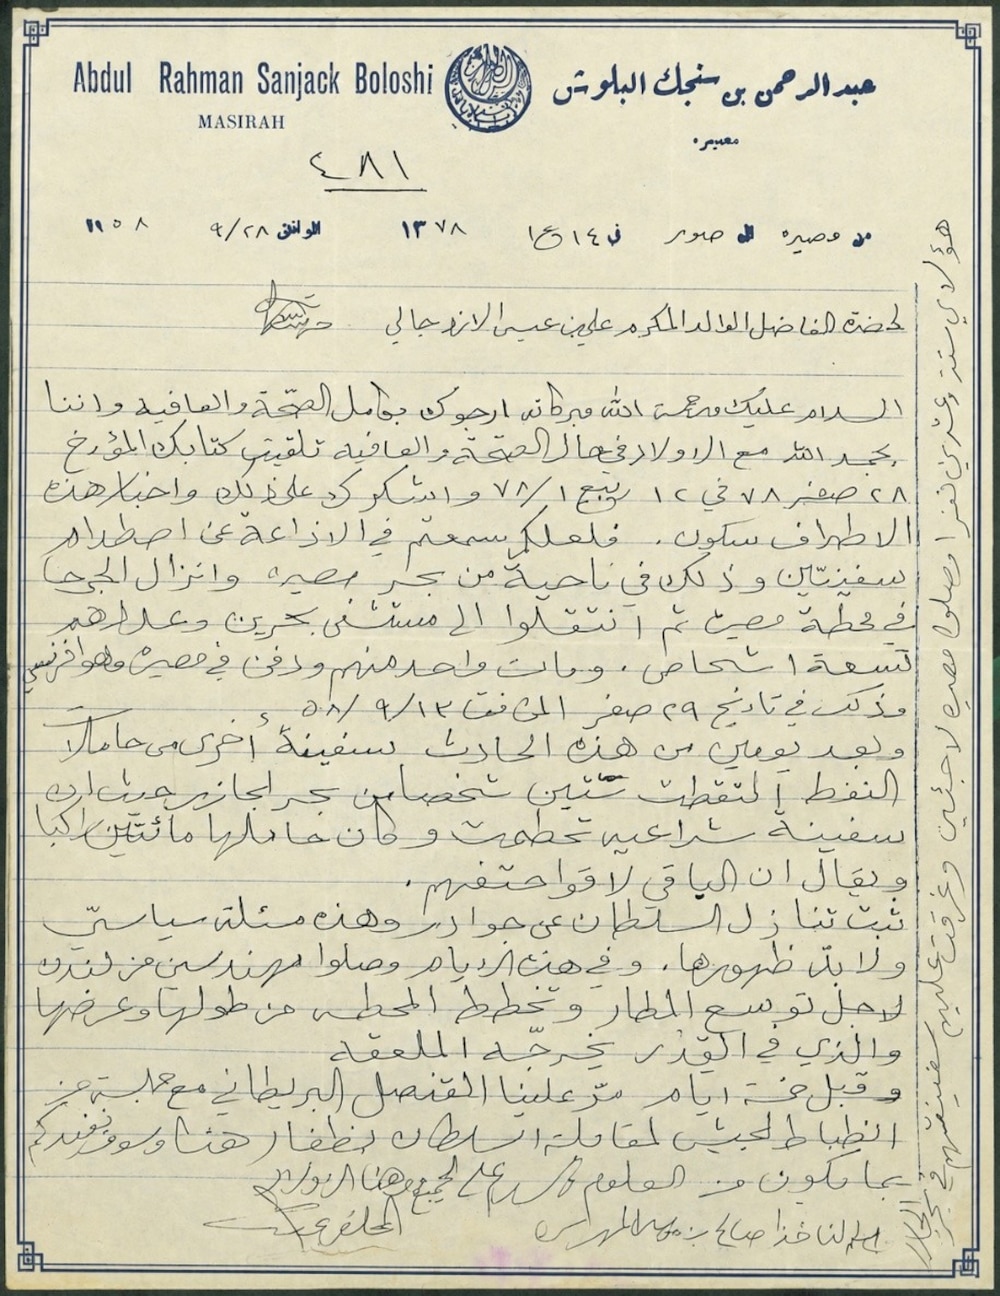 Abdul Rahman Sanjack Boloshi
عبد الرحمن بن سنجك البلوشي
MASIRAH
مصيره
٤٨١
من مصيره الى صور في ١٤ ع١ ١٣٧٨ الموافق ٩/٢٨ ١٩٥٨
لحضرة الفاضل الوالد المكرم علي بن عيسى الازدجالي
السلام عليك ورحمة الله وبركاته ارجوك بكامل الصحّة والعافيه واننا
بحمد الله مع الاولاد في حال الصحّة والعافيه تلقيت كتابك المؤرخ
٢٨ صفر ٧٨ في ١٢ ربيع ٧٨/١ واشكرك على ذلك واخبار هذه
الاطراف سكون. فلعلكم سمعتم في الاذاعة عن اصطدام
سفينتين وذلك في ناحية من بحر مصيره وانزال الجرحا
في محطة مصيره ثم انتقلوا الى مستشفى بحرين وعددهم
تسعة اشخاص. ومات واحد منهم ودفن في مصيره وهو افرنسي
وذلك في تاريخ ٢٩ صفر الموافق ٥٨/٩/١٣
وبعد يومين من هذه الحادث سفينة أخرى من حاملات
النفط التقطت ستين شخصا من بحر الجازر حيث ان
سفينة شراعيه تحطمت وكان حاملها مائتين راكبا
ويقال ان الباقي لاقوا حتفهم.
ثبت تنازل السلطان عن جوادر وهذه مسئلة سياسيّ
ولا بدّ ظهورها. وفي هذه الايام وصلوا مهندسين من لندن
لاجل توسع المطار وتخطط المحطه من طولها وعرضها
والذي في القدر تخرجّه الملعقه
وقبل خمسة ايام مرّ علينا القنصل البريطاني مع جملة من
انظباط الجيش لمقابلة السلطان بظفار هذا وسوف نفيدكم
بما يكون من العلوم والسلام على الجميع ومنا الاولاد
المخلص
بيد الناخذا صالح بن
هؤلاي ستة وعشرين نفرا وصلوا مصيره لاجئين وغرقت عليهم
سفينتهم في بحر الجازر